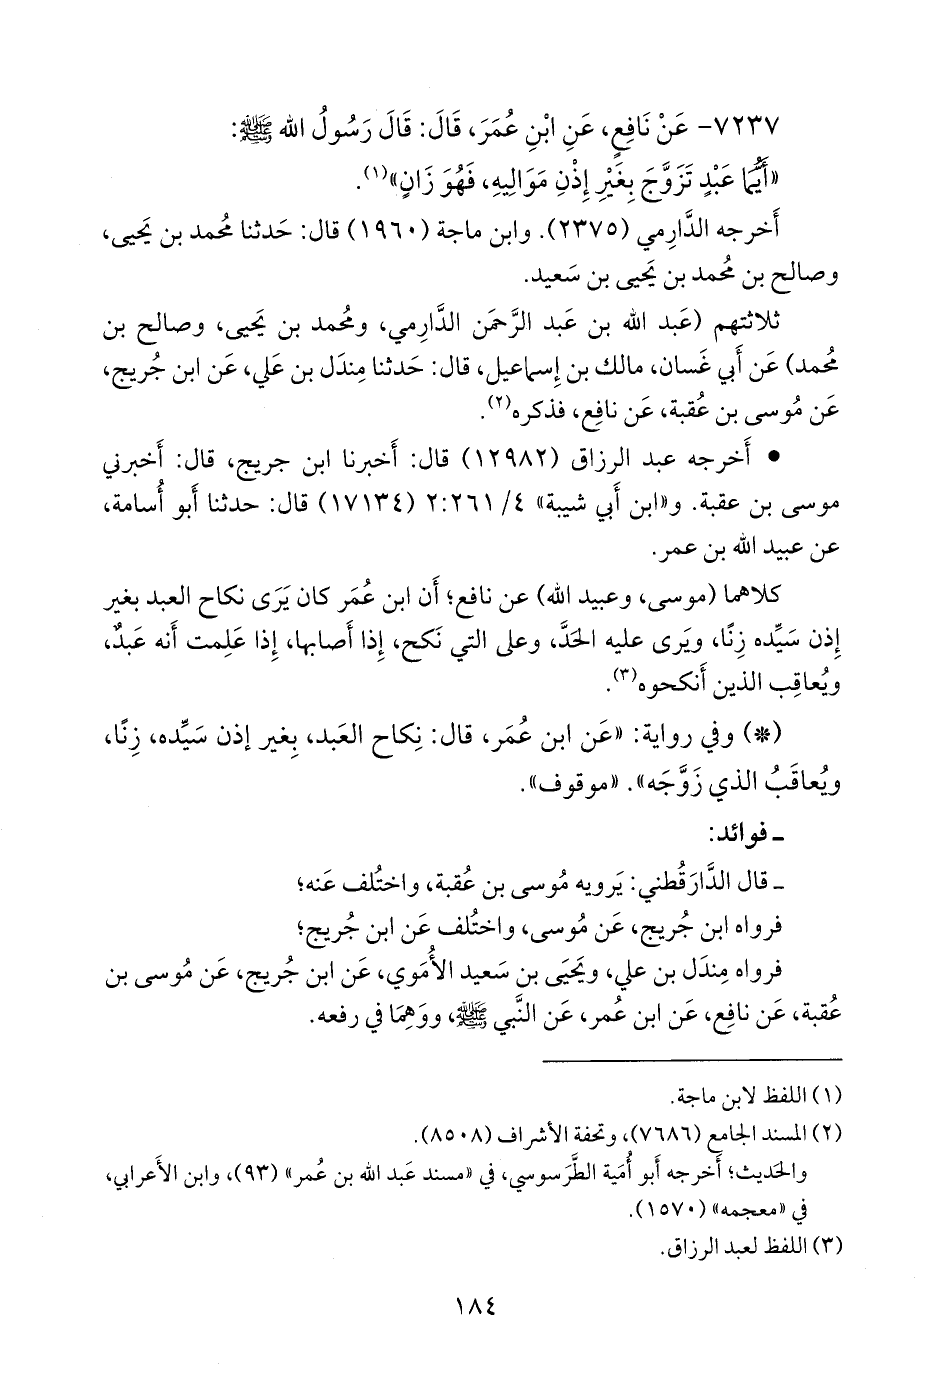 ٧٢٣٧- عَنْ نَافِعٍ، عَنِ ابْنِ عُمَرَ، قَالَ: قَالَ رَسُولُ الله ﷺ:
«أَيُّمَا عَبْدٍ تَزَوَّجَ بِغَيْرِ إِذْنِ مَوَالِيهِ، فَهُوَ زَانٍ»(١).
أَخرجه الدَّارِمي (٢٣٧٥). وابن ماجة (١٩٦٠) قال: حَدثنا مُحمد بن يَحيى،
وصالح بن مُحمد بن يَحيى بن سَعيد.
ثلاثتهم (عَبد الله بن عَبد الرَّحمَن الدَّارِمي، ومُحمد بن يَحيى، وصالح بن
مُحمد) عَن أَبي غَسان، مالك بن إِسماعيل، قال: حَدثنا مِندَل بن عَلي، عَن ابن جُريج،
عَن مُوسى بن عُقبة، عَن نافِع، فذكره(٢).
• أَخرجه عبد الرزاق (١٢٩٨٢) قال: أَخبرنا ابن جريج، قال: أَخبرني
موسى بن عقبة. و«ابن أَبي شيبة» ٤/ ٢:٢٦١ (١٧١٣٤) قال: حدثنا أَبو أُسامة،
عن عبيد الله بن عمر.
كلاهما (موسى، وعبيد الله) عن نافع؛ أَن ابن عُمَر كان يَرَى نكاح العبد بغير
إِذن سَيِّده زِنًا، ويَرى عليه الحَدَّ، وعلى التي نَكح، إِذا أَصابها، إِذا عَلِمت أَنه عَبدٌ،
ويُعاقِب الذين أَنكحوه(٣).
(*) وفي رواية: «عَن ابن عُمَر، قال: نِكاح العَبد، بِغير إذن سَيِّده، زِنًا،
ويُعاقَبُ الذي زَوَّجَه». «موقوف».
ـ فوائد:
ـ قال الدَّارَقُطني: يَرويه مُوسى بن عُقبة، واختُلف عَنه؛
فرواه ابن جُريج، عَن مُوسى، واختُلف عَن ابن جُريج؛
فرواه مِندَل بن علي، ويَحيَى بن سَعيد الأُمَوي، عَن ابن جُريج، عَن مُوسى بن
عُقبة، عَن نافِع، عَن ابن عُمر، عَن النَّبي ﷺ، ووَهِمَا في رفعه.
(١) اللفظ لابن ماجة.
(٢) المسند الجامع (٧٦٨٦)، وتحفة الأشراف (٨٥٠٨).
والحَديث؛ أَخرجه أَبو أُمَية الطَّرَسوسي، في «مسند عَبد الله بن عُمر» (٩٣)، وابن الأَعرابي،
في «معجمه» (١٥٧٠).
(٣) اللفظ لعبد الرزاق.
١٨٤